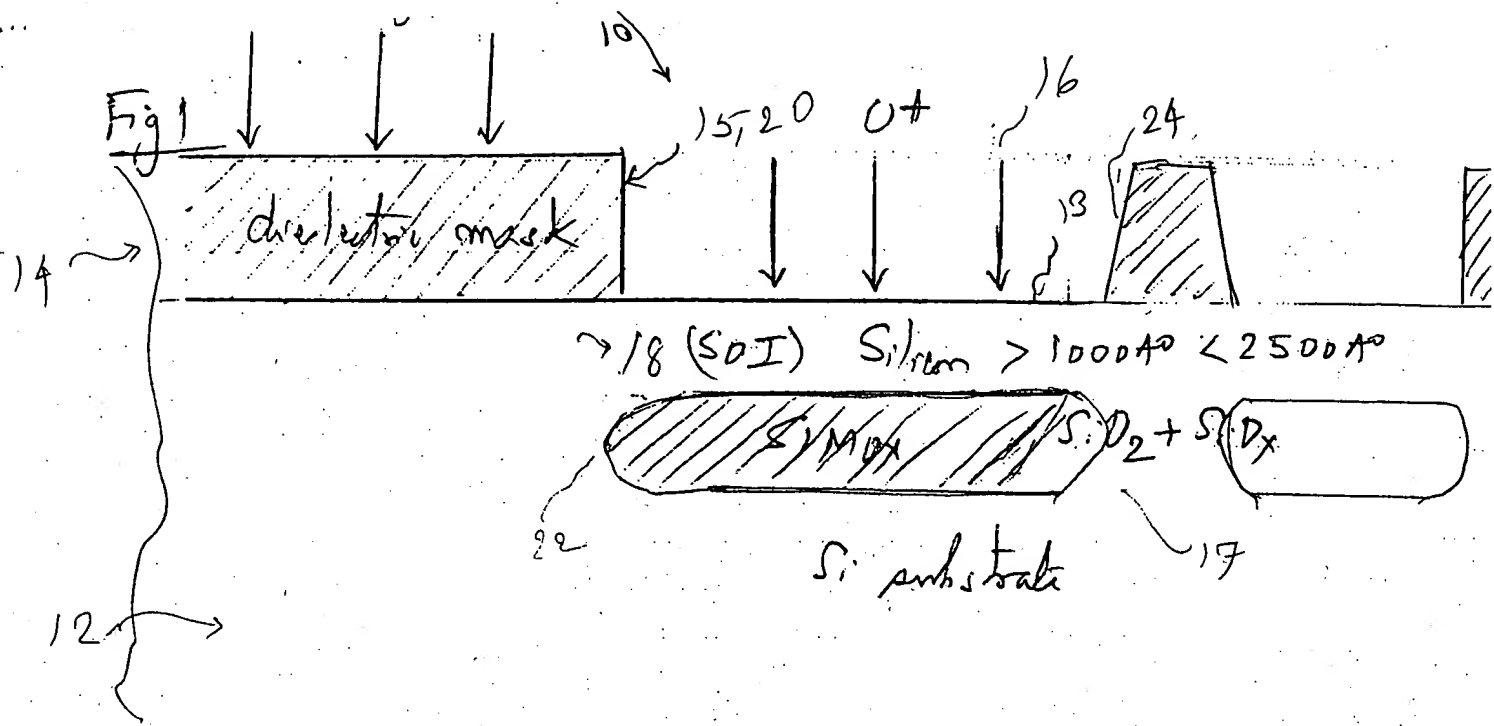 10
Fig 1
15, 20 O+ 16
24
dielectric mask
13
14
18 (SOI) Silicon > 1000A° < 2500A°
SiMox SiO2 + SiOx
22
Si substrate
17
12